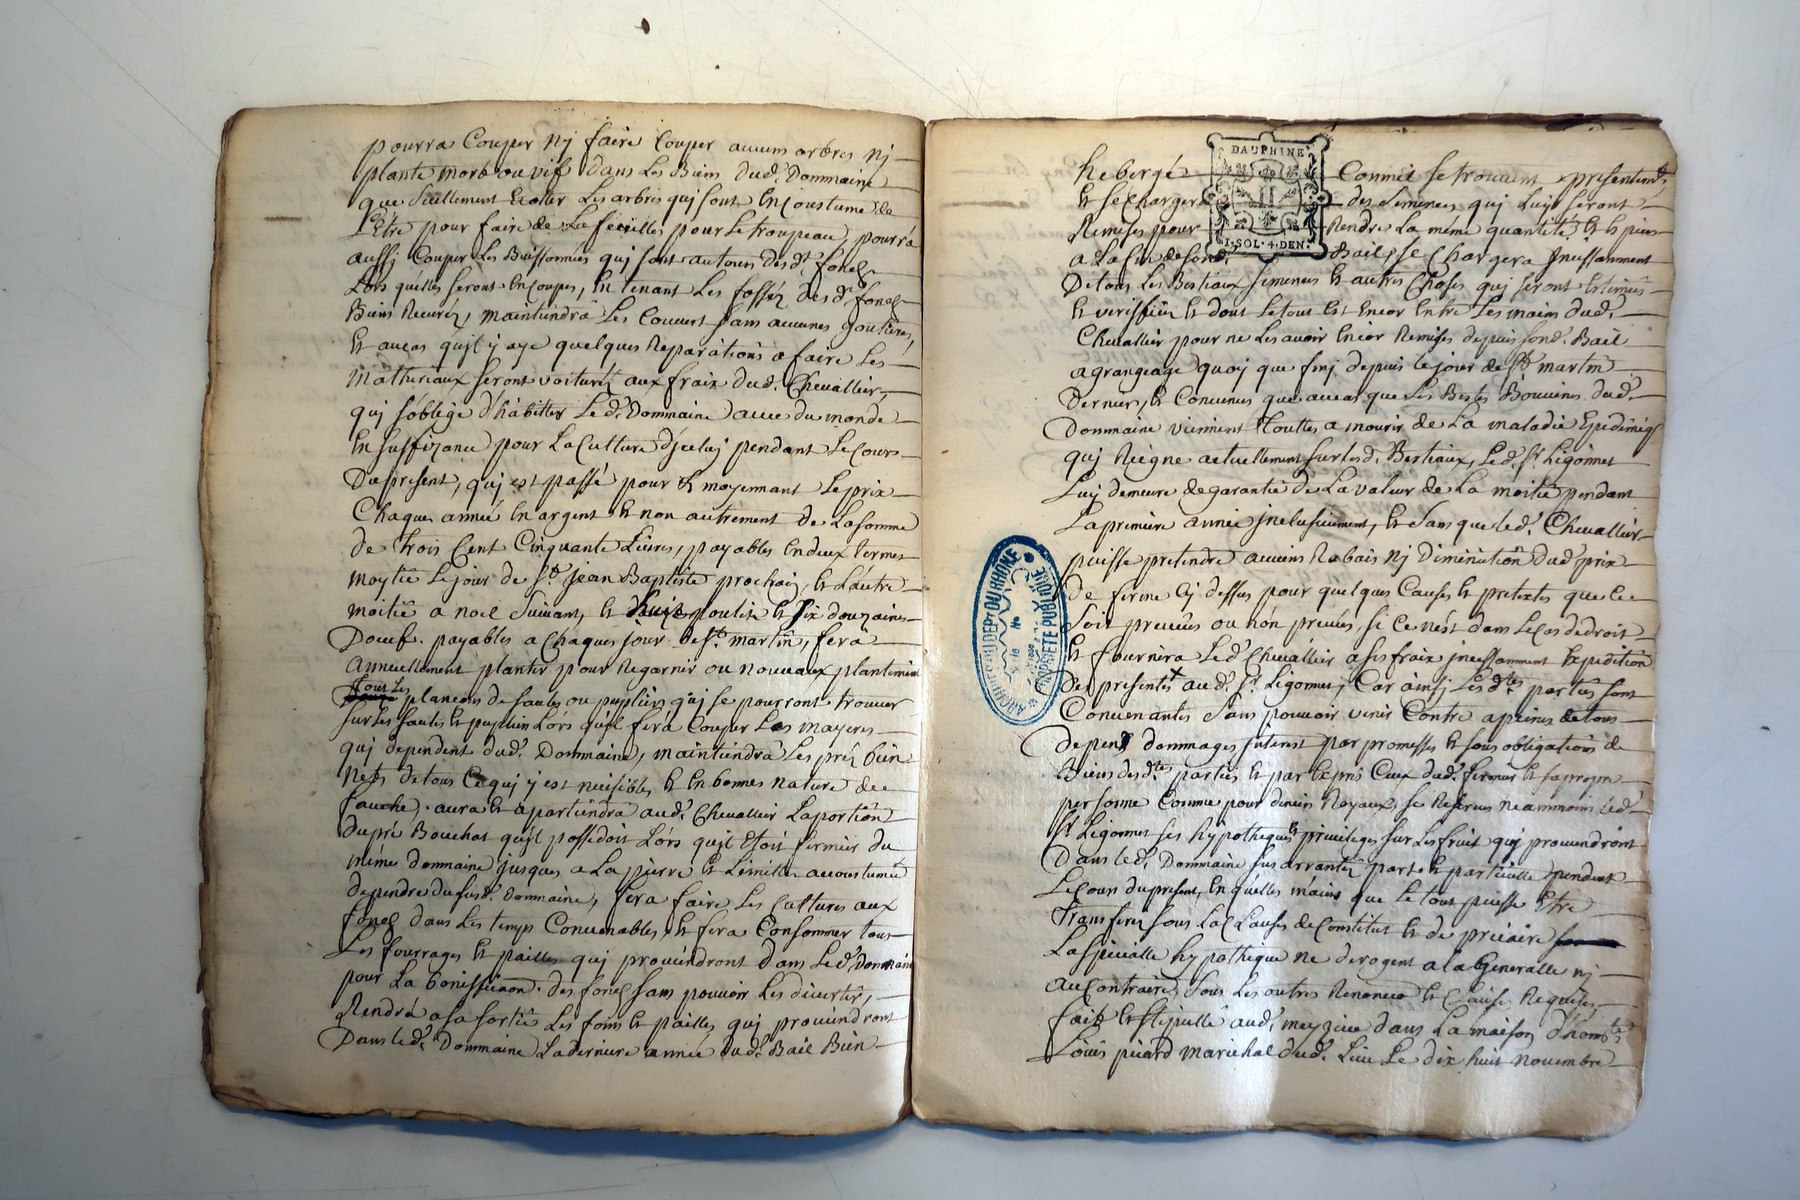 pourra Couper ny faire Couper aucuns arbres ny
plante mort ou vif dans Les Biens dud. Dommaine
que Seullement Exotter Les arbres qui sont En Coustume de
L'Etre pour faire de La feüilles pour Le troupeau, pourra
aussi Couper Les Buissonnées qui sont autours desd. fonds
Lors quelles seront En Coupes, En tenant Les fossez desd. fonds
Biens Recurez, maintiendra Les Couvert sans aucunes goutieres,
Et au cas quil y aye quelques Reparations a faire Les
mattureaux seront voiturez aux fraix dud. Chevallier,
qui s'oblige d'habitter Led. Dommaine avec du monde
En suffizance pour La Culture d'jceluy pendant Le Cours
Du present, qui est passé pour Et moyennant Le prix
Chaque année En argent Et non autrement de La somme
de trois Cent Cinquante Livres, payables En deux termes
moytié Le jour de St. Jean Baptiste prochain, Et L'autre
moitié a noel Suivant, Et poulets Et six douzaines
D'oeufs payables a Chaques jour de St. martin, fera
annuellement planter pour Regarnir ou nouveaux plantement
tous Les plançons de saules ou pupliers qui se pourront trouver
sur Les saules Et puplier Lors quil fera Couper Les mayeres
qui dependent dud. Dommaine, maintiendra Les prez bien
Nets de tous Ce qui y est nuisibles Et En bonnes nature de
fauche, aura Et apartiendra aud. Chevallier La portion
du pré Bouchat quil possedoit Lors quil Etoit fermier du
même dommaine jusques a La pierre Et Limitte accoutumé
dependre du susd. Dommaine, fera faire Les Cultures aux
fonds dans Les temps Convenables, Et fera Consommer tous
Les fourrages Et pailles qui proviendront dans Led. Dommaine
pour La bonissicaon des fonds sans pouvoir Les divertir,
Rendra a sa sortie Les foins Et pailles qui proviendront
Dans Led. Dommaine La derniere année dud. Bail Bien
DAUPHINE
I·SOL·4·DEN·
hebergé Comme se trouvent presentemt.
Et se Chargera des Semences qui Luy seront
Remises pour Rendre La même quantité Et
a La fin de sond. Bail, se Chargera Incessamment
De tous Les Bestiaux Semences Et autres Choses qui seront Estimées
Et veriffiées Et dont Le tout Est Encor Entre Les mains dud.
Chevallier pour ne Les avoir Encor Remises depuis sond. Bail
a grangeage quoy que finj depuis Le jour de St. martin
Dernier, Et Convenus que au cas que Les Bestes Bouvines dud.
Dommaine viennent touttes a mourir de La maladie
qui Reigne actuellement sur Lesd. Bestiaux, Led. Sr. Ligonnet
Luy demeure de garantie de La valeur de La moitié pendant
La premiere année jnclusivement, Et sans que Led. Chevallier
puisse pretendre aucuns Rabais ny Diminution dud. prix
De ferme Cy dessus pour quelques Causes Et pretextes que Ce
Soit preveües ou nón preveües, si Ce n'est dans Le Cas de droit
Et fournira Led. Chevallier a ses fraix jncessamment Expedition
Des presentes aud. Sr. Ligonnet, Car ainsj Lesd. parties sont
Convenantés Sans pouvoir venir Contre a peines de tous
depens dommages Interest par promesses Et sous obligations de
Biens desd. parties Et par Exprés Ceux dud. fermier Et sa propre
personne Comme pour deniers Royaux, se Reserves neammoins Led.
Sr. Ligonnet ses hypotheques Et privileges sur Les fruit qui proviendront
Dans Led. Dommaine sus arrantez parte Et particulle pendent
Le Cours du present, En quelles máins que Le tout puisse Etre
Transferez sous La Clauses de Constitut Et de précaire
La specialle hypotheque ne derogent a La Generalle ny
au Contraire, Sous Les autres Renonces Et Clause Requises
fait Et stipullé aud. meyzieu dans La maison d'honte.
Louis picard maréchal dud. Lieu Le dix huit novembre
ARCHIVES DU DEPT DU RHONE
PROPRIETE PUBLIQUE